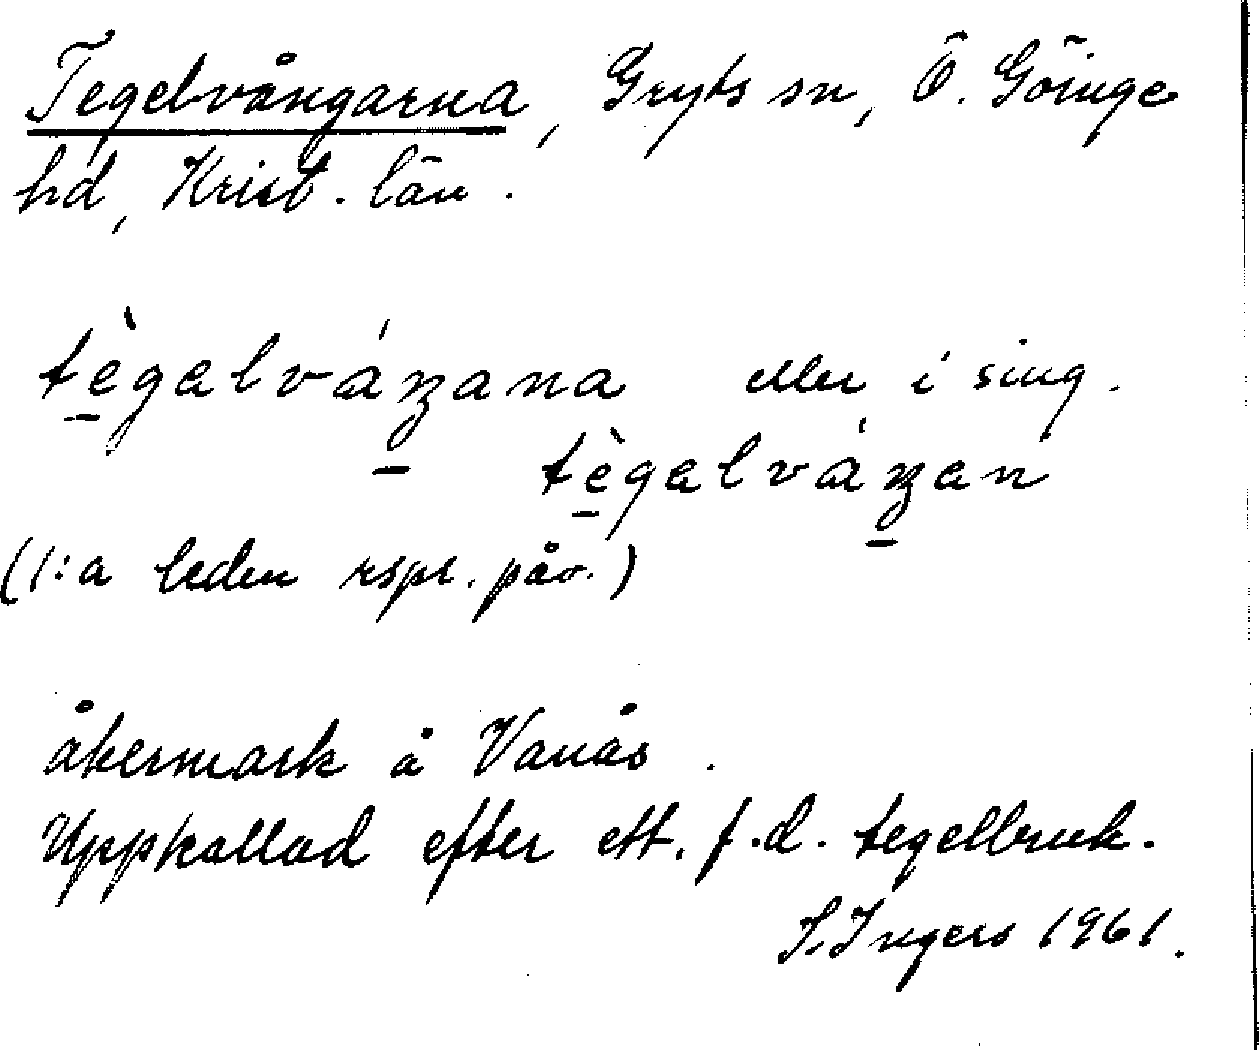 Tegelvångarna, Gryts sn, Ö. Göinge
hd, Krist. län.
tègalváŋana eller i sing.
tègalváŋan
(1:a leden rspr. påv.)
åkermark å Vanås.
Uppkallad efter ett. f.d. tegelbruk.
S. Ingers 1961.